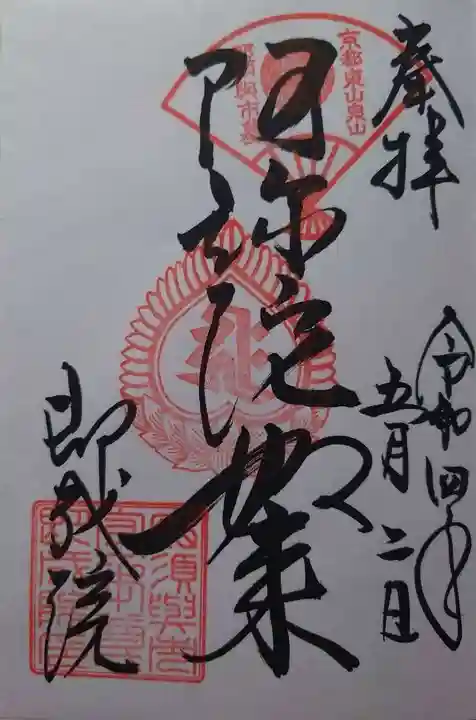 奉拝
令和四年
五月二日
京都東山泉山
那須與市墓
阿弥陀如来
即成院